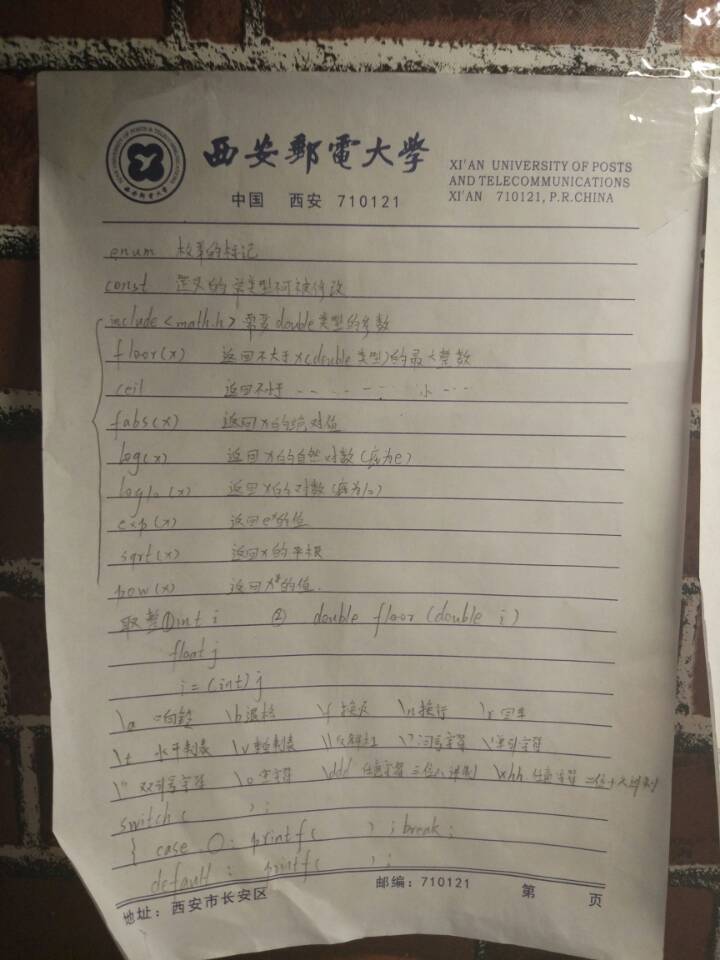 西安郵電大學
中国 西安 710121
XI'AN UNIVERSITY OF POSTS
AND TELECOMMUNICATIONS
XI'AN 710121, P.R.CHINA
enum 枚举的标记
const 定义的 类型不可被修改
include<math.h> 需要double类型的参数
floor(x) 返回不大于x(double类型)的最大整数
ceil 返回不小于 小
fabs(x) 返回x的绝对值
log(x) 返回x的自然对数(底为e)
log10(x) 返回x的对数(底为10)
exp(x) 返回eˣ的值
sqrt(x) 返回x的平方根
pow(x) 返回 的值.
取整①int i ② double floor(double i)
float j
i=(int)j
\a 响铃 \b 退格 \f 换页 \n 换行 \r 回车
\t 水平制表 \v 垂直制表 \\ 反斜杠 \? 问号字符 \' 单引字符
\" 双引号字符 \0 空字符 \ddd 任意字符 三位八进制 \xhh 任意字符 二位十六进制
switch( );
{ case 0: printf( ); break;
default: printf( );
地址: 西安市长安区 邮编: 710121 第 页